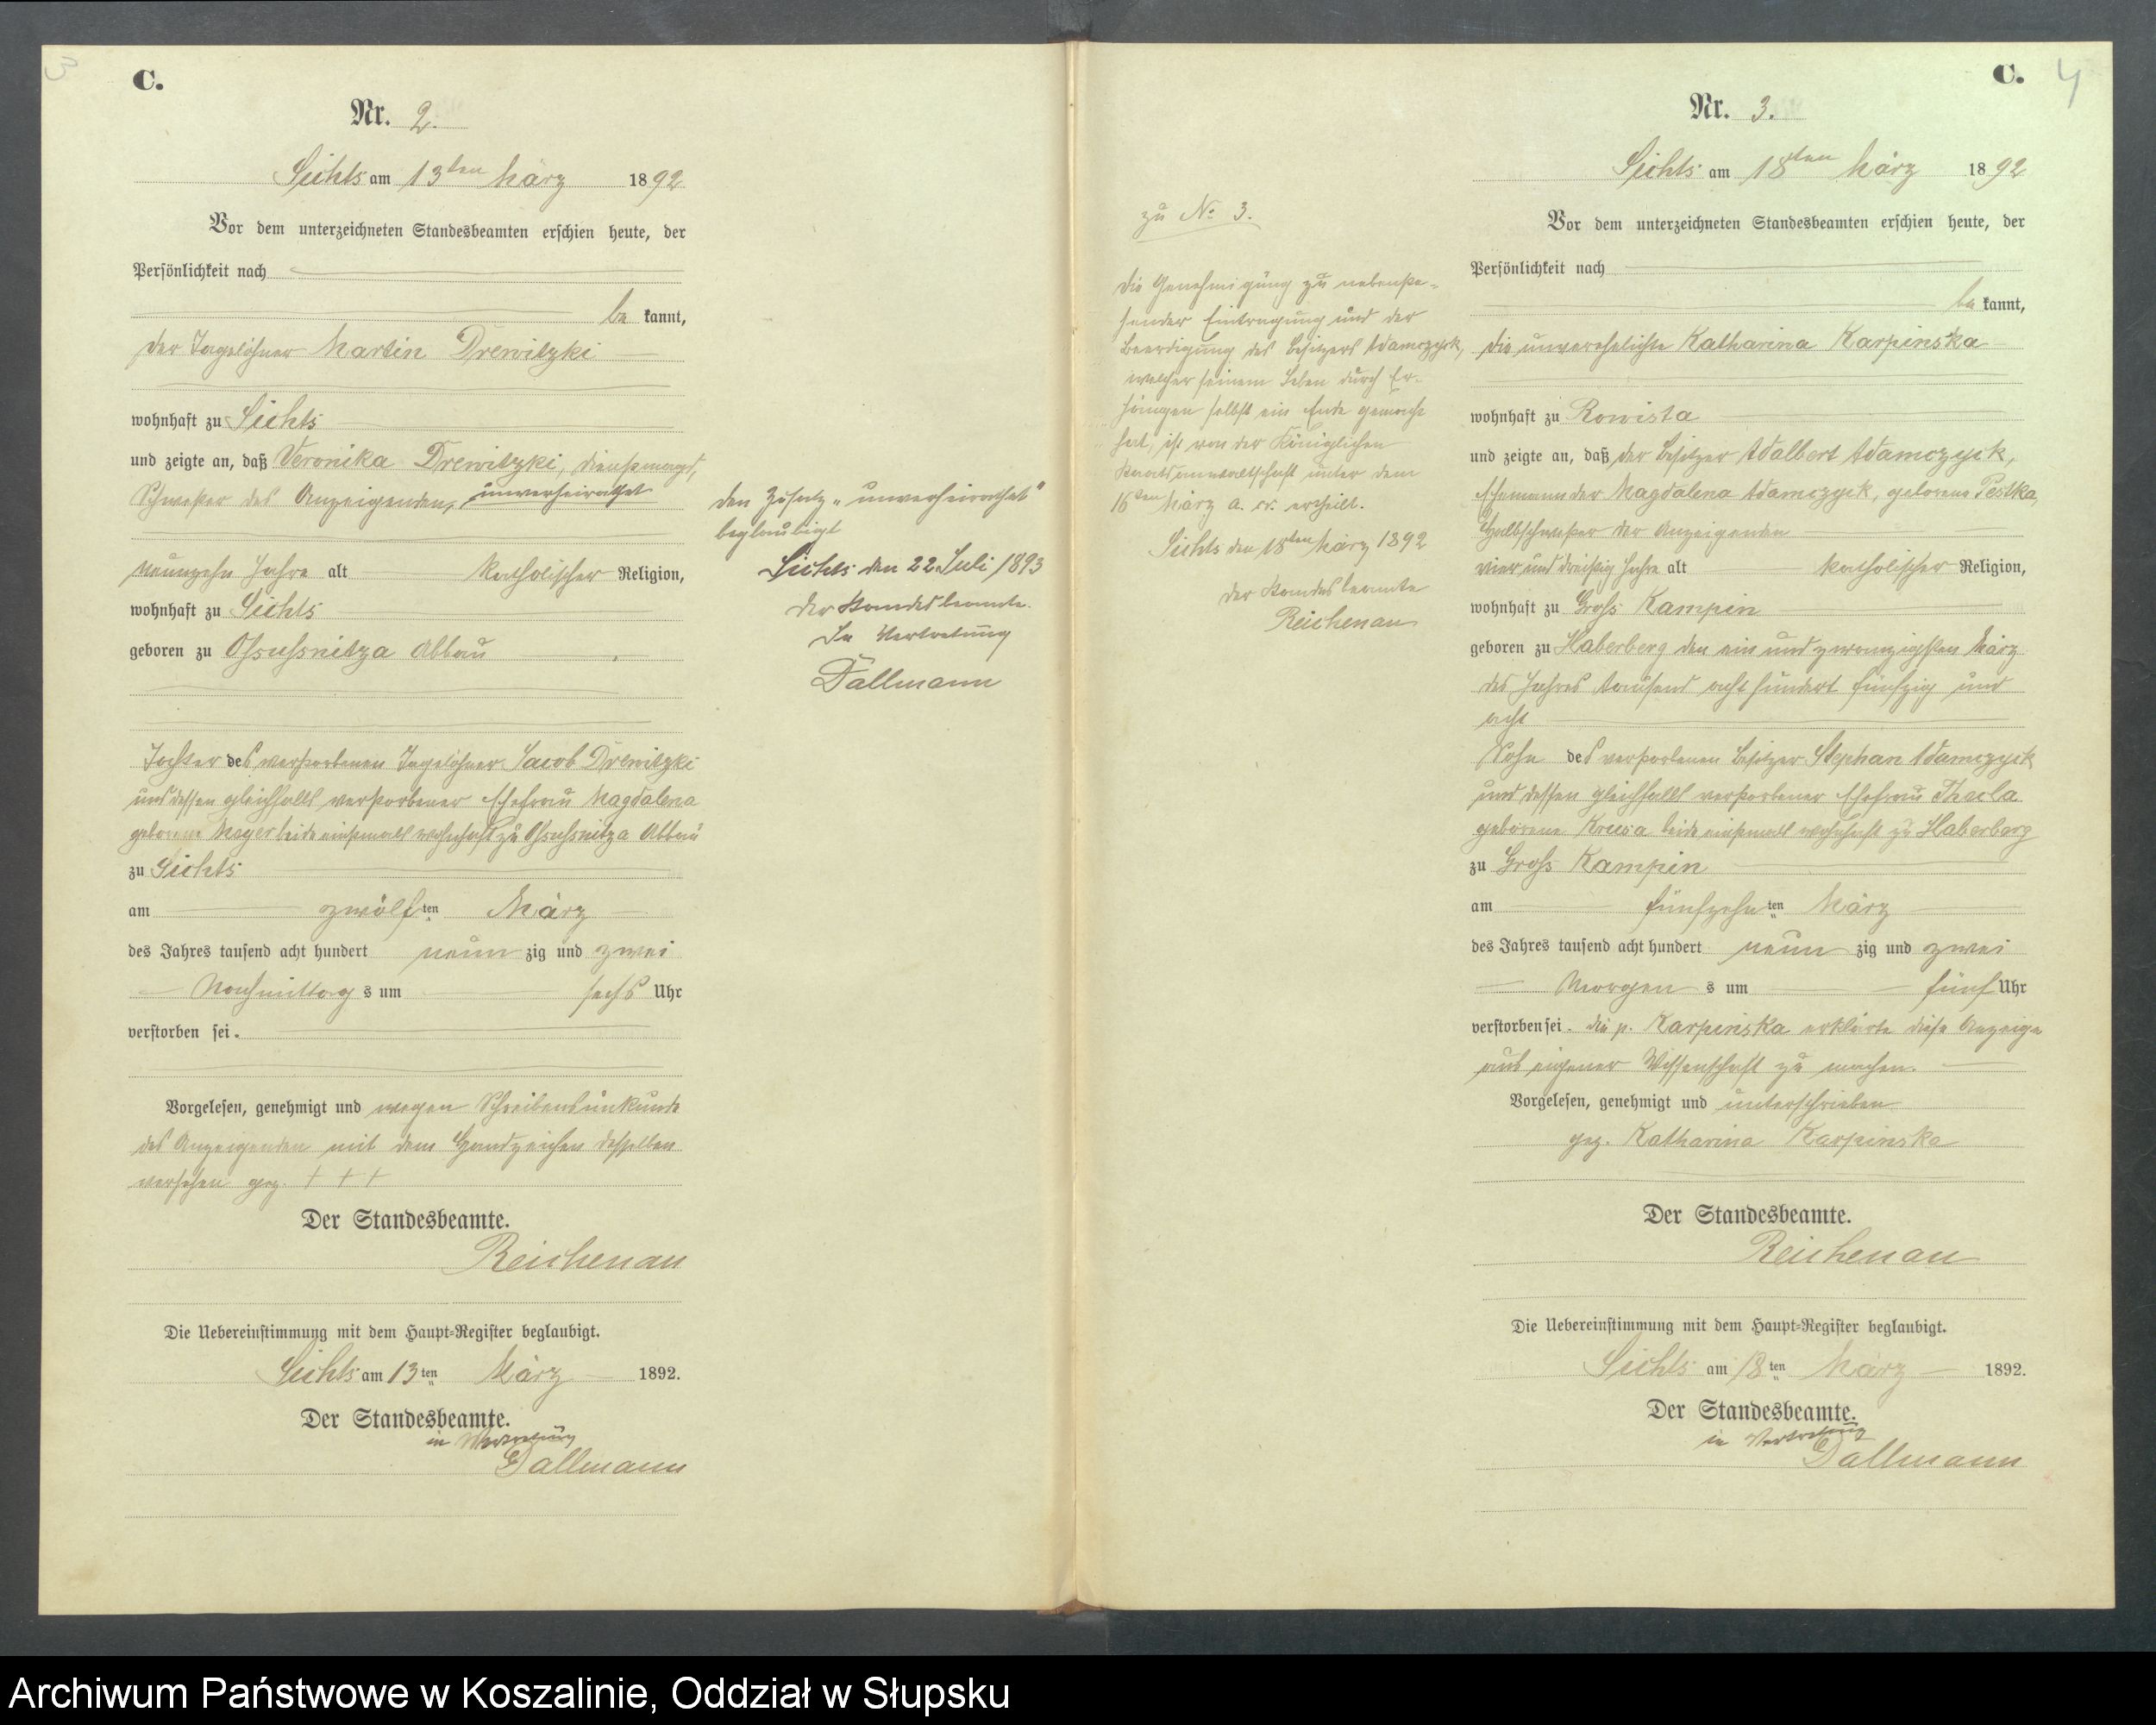 3
C.
Nr. 2.
Lichts am 13ten März 1892
Vor dem unterzeichneten Standesbeamten erschien heute, der
Persönlichkeit nach
be kannt,
der Tagelöhner Martin Drewitzki
wohnhaft zu Lichts
und zeigte an, daß Veronika Drewitzki, Dienstmagd,
Schwester des Anzeigenden, unverheirathet
neunzehn Jahre alt katholischer Religion,
wohnhaft zu Lichts
geboren zu Ossussnitza Abbau
Tochter des verstorbenen Tagelöhner Jacob Drewitzki
und dessen gleichfalls verstorbener Ehefrau Magdalena
geborene Meyer beide einstmals wohnhaft zu Ossussnitza Abbau
zu Lichts
am zwölf ten März
des Jahres tausend acht hundert neun zig und zwei
Nachmittag s um sechs Uhr
verstorben sei.
Vorgelesen, genehmigt und wegen Schreibensunkunde
des Anzeigenden mit dem Handzeichen desselben
versehen gez. + + +
Der Standesbeamte.
Reichenau
Die Uebereinstimmung mit dem Haupt-Register beglaubigt.
Lichts am 13 ten März 1892.
Der Standesbeamte.
in Vertretung
Dallmann
Den Zusatz "unverheirathet"
beglaubigt
Lichts den 22. Juli 1893
Der Standesbeamte.
In Vertretung
Dallmann
zu No 3.
Die Genehmigung zu nebenste-
hender Eintragung und der
Beerdigung des Besitzers Adamczyck,
welcher seinem Leben durch Er-
hängen selbst ein Ende gemacht
hat, ist von der Königlichen
Staatsanwaltschaft unter dem
16ten März a. cr. ertheilt.
Lichts den 18ten März 1892
Der Standesbeamte
Reichenau
C.
4
Nr. 3.
Lichts am 18ten März 1892
Vor dem unterzeichneten Standesbeamten erschien heute, der
Persönlichkeit nach
be kannt,
die unverehelichte Katharina Karpinska
wohnhaft zu Rowista
und zeigte an, daß der Besitzer Adalbert Adamczyck,
Ehemann der Magdalena Adamczyck, geborene Pestka,
Halbschwester der Anzeigenden
vier und dreißig Jahre alt katholischer Religion,
wohnhaft zu Gross Kampin
geboren zu Haberberg den ein und zwanzigsten März
des Jahres tausend acht hundert fünfzig und
acht
Sohn des verstorbenen Besitzer Stephan Adamczyck
und dessen gleichfalls verstorbener Ehefrau Thecla
geborene beide einstmals wohnhaft zu Haberberg
zu Gross Kampin
am fünfzehn ten März
des Jahres tausend acht hundert neun zig und zwei
Morgen s um fünf Uhr
verstorben sei. Die p. Karpinska erklärte diese Anzeige
aus eigener Wissenschaft zu machen.
Vorgelesen, genehmigt und unterschrieben
gez. Katharina Karpinska
Der Standesbeamte.
Reichenau
Die Uebereinstimmung mit dem Haupt-Register beglaubigt.
Lichts am 18 ten März 1892.
Der Standesbeamte.
in Vertretung
Dallmann
Archiwum Państwowe w Koszalinie, Oddział w Słupsku